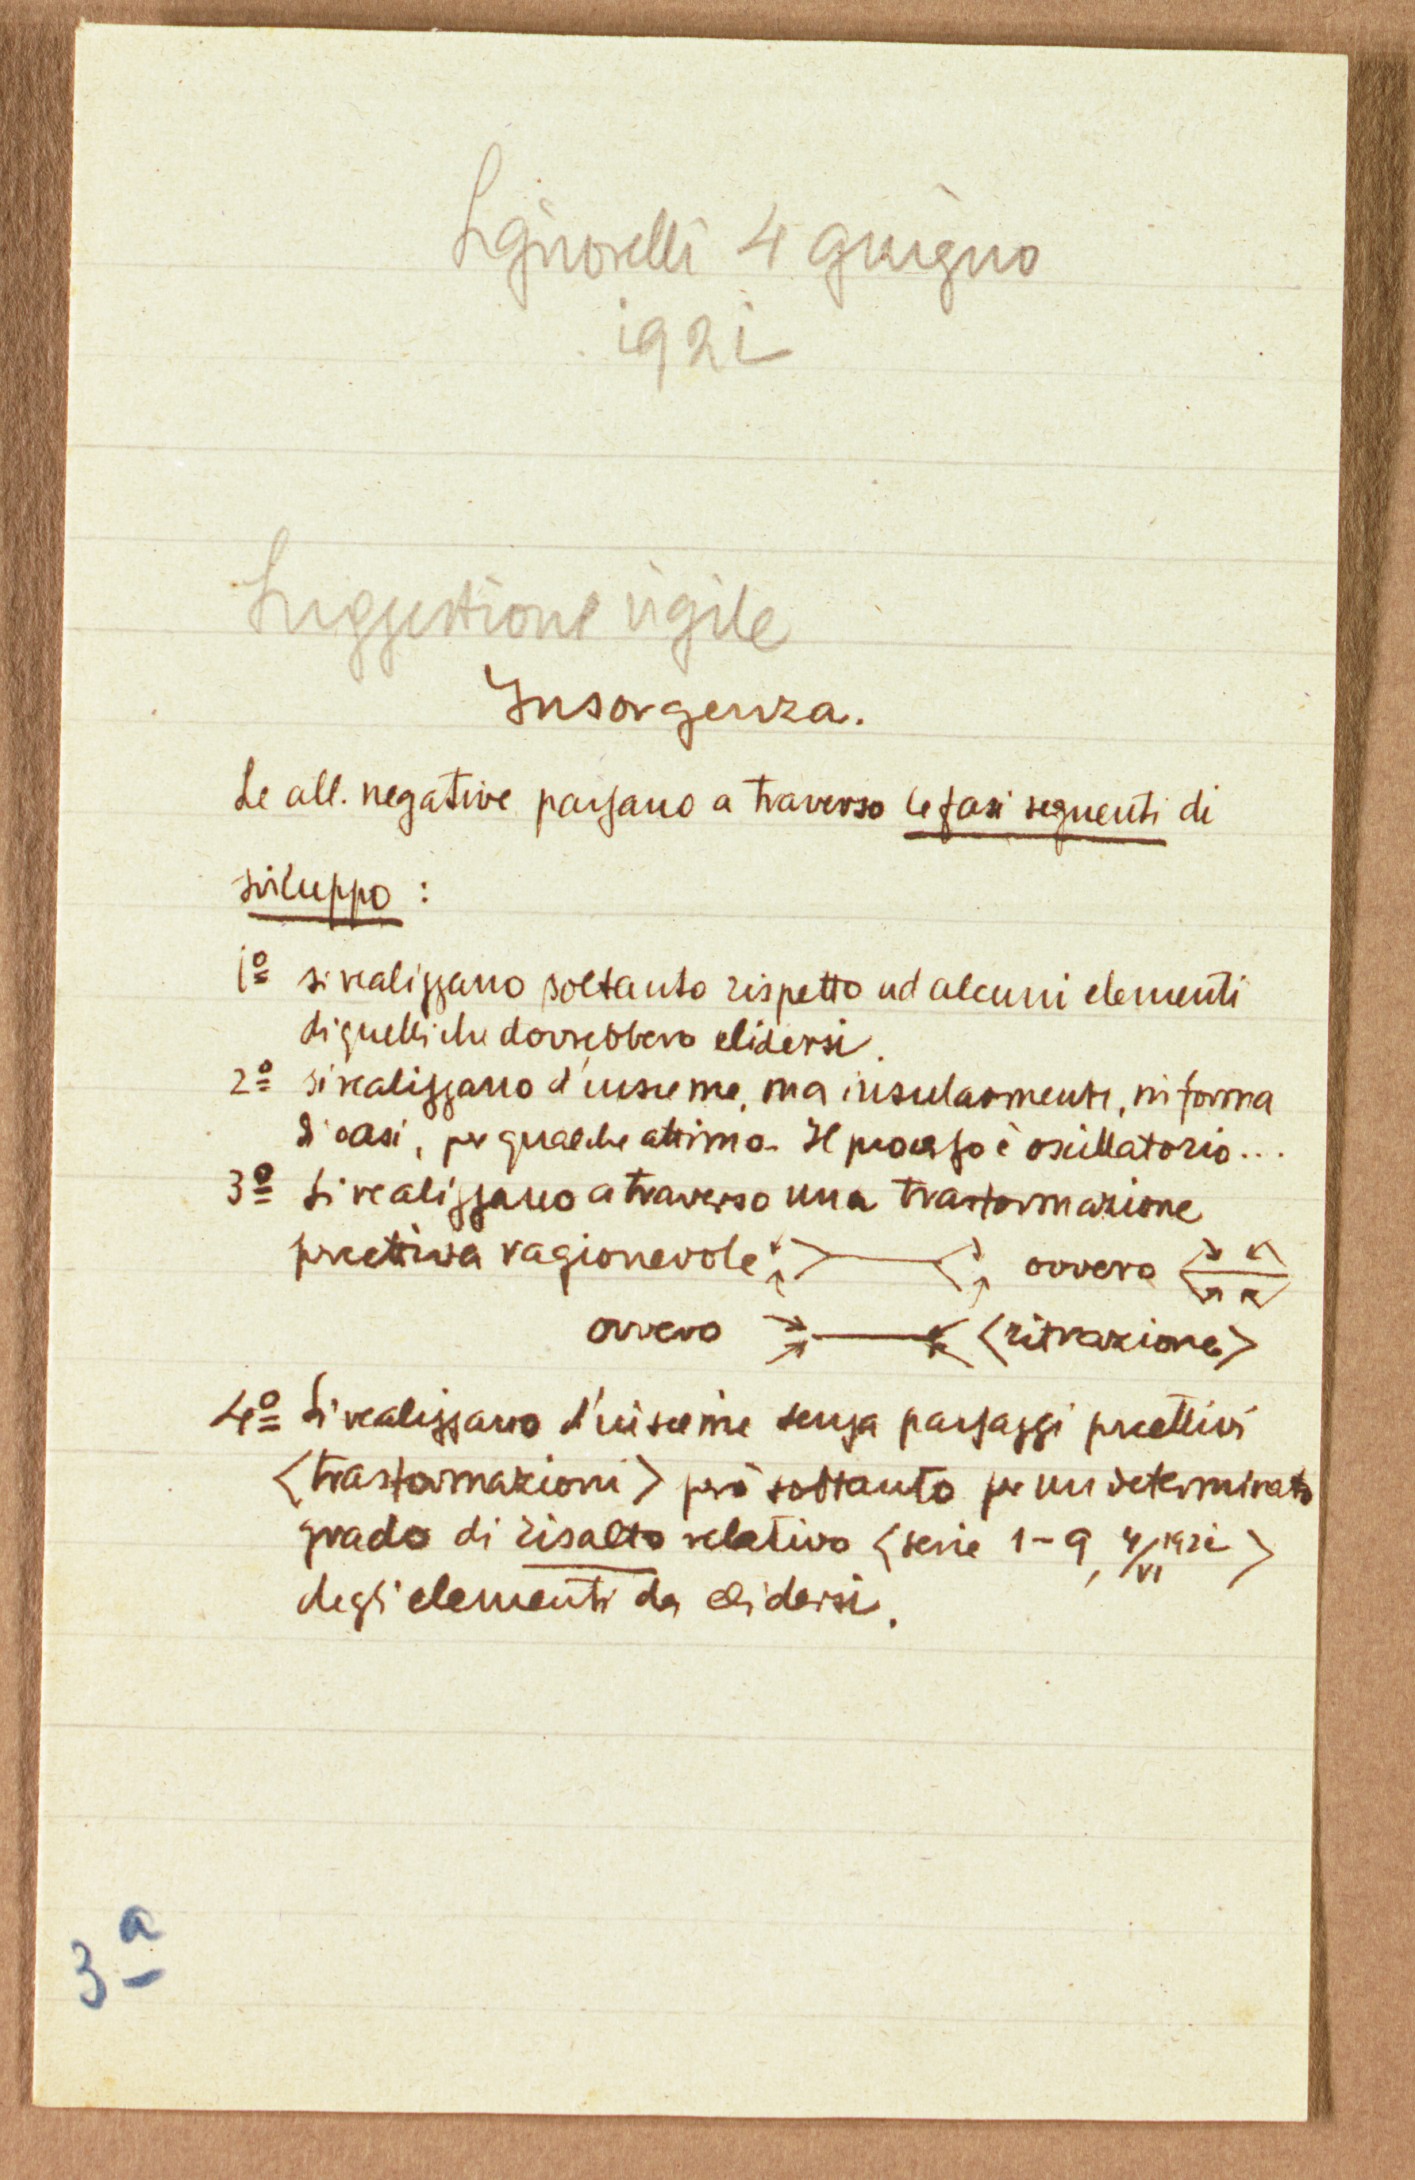 Signorelli 4 giugno
1921
Suggestione vigile
Insorgenza.
Le all. negative passano a traverso le fasi seguenti di
sviluppo :
1º si realizzano soltanto rispetto ad alcuni elementi
di quelli che dovrebbero elidersi.
2º si realizzano d'insieme, ma insularmente, in forma
di oasi, per qualche attimo. Il processo è oscillatorio...
3º Si realizzano a traverso una trasformazione
precettiva ragionevole ovvero
ovvero <ritrazione>
4º Si realizzano d'insieme senza passaggi precettivi
<trasformazioni> però soltanto per un determinato
grado di risalto relativo <serie 1-9, 4/VI 1921>
degli elementi da elidersi.
3ª